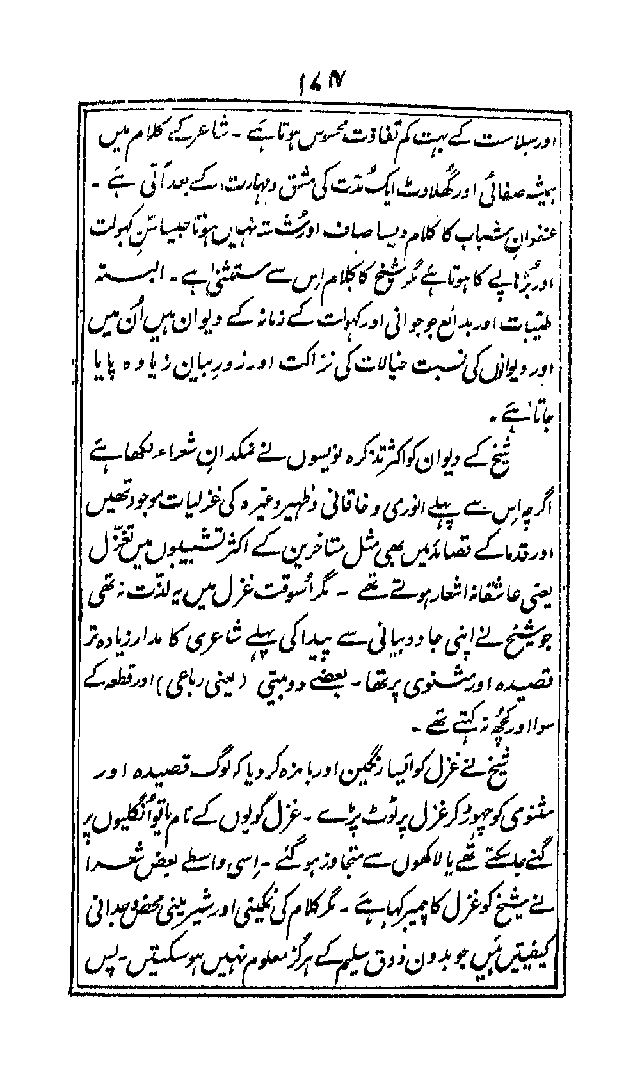 ۱۶۷
اور سلاست کے بہت کم تفاوت محسوس ہوتا ہے ۔ شاعر کے کلام میں
ہمیشہ صفائی اور گُھلاوٹ ایک مُدّت کی مشق و مہارت کے بعد آتی ہے ۔
عنفوانِ شباب کا کلام ویسا صاف اور شُستہ نہیں ہوتا جیسا سنِ کہولت
اور بُڑاپے کا ہوتا ہے مگر شیخ کا کلام اس سے مستثنیٰ ہے ۔ البتہ
طیبات اور بدائع جو جوانی اور کہولت کے زمانہ کے دیوان ہیں اُن میں
اور دیوانوں کی نسبت خیالات کی نزاکت اور زورِ بیان زیادہ پایا
جاتا ہے ۔
شیخ کے دیوان کو اکثر تذکرہ نویسوں نے نمکدانِ شعراء لکھا ہے
اگرچہ اس سے پہلے انوری و خاقانی و ظہیر وغیرہ کی غزلیات موجود تھیں
اور قدما کے قصائد میں بھی مثل متاخرین کے اکثر تشبیبوں میں تغزّل
یعنی عاشقانہ اشعار ہوتے تھے ۔ مگر اُسوقت غزل میں یہ لذّت نہ تھی
جو شیخ نے اپنی جادو بیانی سے پیدا کی پہلے شاعری کا مدار زیادہ تر
قصیدہ اور مثنوی پر تھا ۔ بعضے دوبیتی (یعنی رباعی) اور قطعہ کے
سوا اور کچھ نہ کہتے تھے ۔
شیخ نے غزل کو ایسا رنگین اور بامزہ کر دیا کہ لوگ قصیدہ اور
مثنوی کو چھوڑ کر غزل پر ٹوٹ پڑے ۔ غزل گویوں کے نام یا تو اُنگلیوں پر
گنے جا سکتے تھے یا لاکھوں سے متجاوز ہو گئے ۔ اسی واسطے بعض شعرا
نے شیخ کو غزل کا پیمبر کہا ہے ۔ مگر کلام کی نمکینی اور شیرینی محض وجدانی
کیفیتیں ہیں جو بدون ذوق سلیم کے ہرگز معلوم نہیں ہو سکتیں ۔ پس